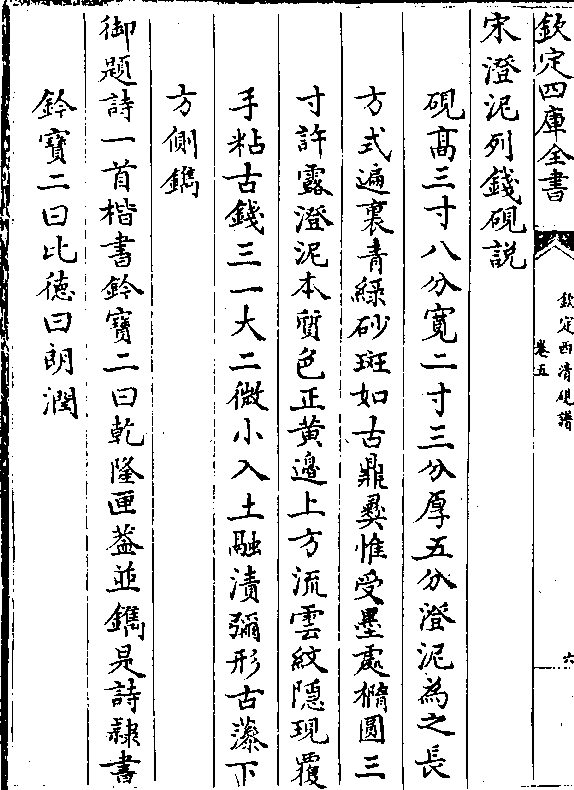 欽定四庫全書
欽定西清硯譜
卷五
六
宋澄泥列錢硯説
硯髙三寸八分寛二寸三分厚五分澄泥為之長
方式遍裹青緑砂斑如古鼎彞惟受墨處橢圓三
寸許露澄泥本質色正黄邊上方流雲紋隠現覆
手粘古錢三一大二微小入土融漬彌形古藻下
方側鐫
御題詩一首楷書鈐寶二曰乾隆匣葢並鐫是詩隷書
鈐寶二曰比徳曰朗潤